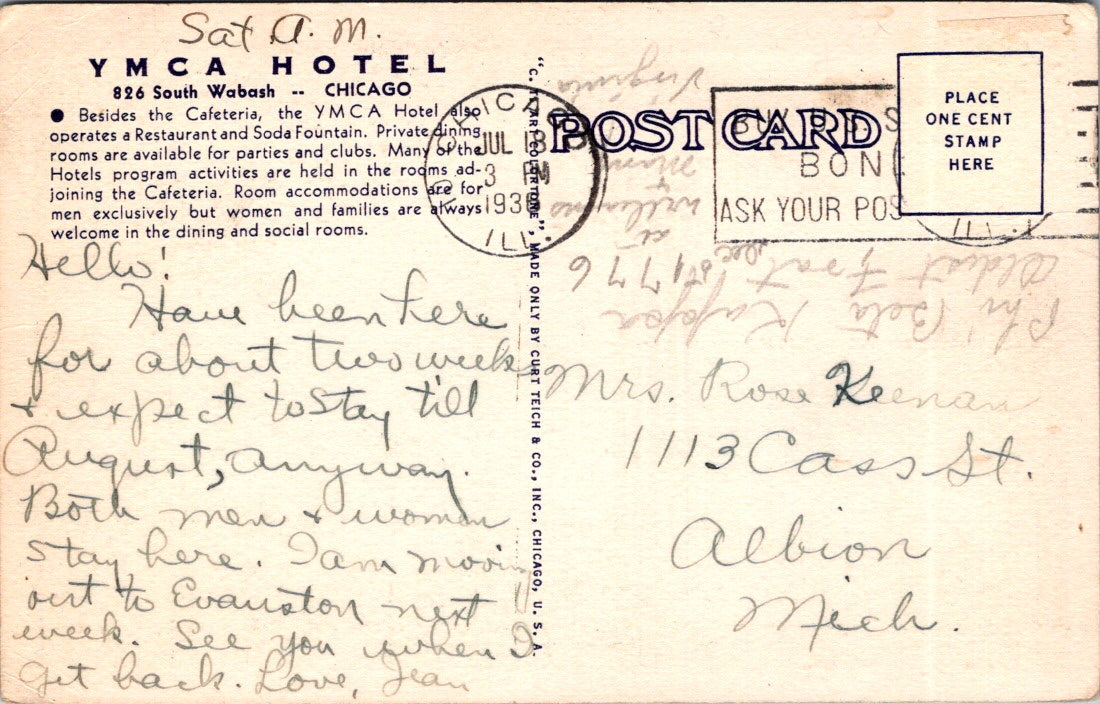 Sat A. M.
YMCA HOTEL
826 South Wabash -- CHICAGO
● Besides the Cafeteria, the YMCA Hotel also
operates a Restaurant and Soda Fountain. Private dining
rooms are available for parties and clubs. Many of the
Hotels program activities are held in the rooms ad-
joining the Cafeteria. Room accommodations are for
men exclusively but women and families are always
welcome in the dining and social rooms.
Hello!
Have been here
for about two weeks
+ expect to stay till
August, anyway.
Both men + woman
stay here. I am moving
out to Evanston next
week. See you when I
get back. Love, Jean
"C. T. ART-COLORTONE", MADE ONLY BY CURT TEICH & CO., INC., CHICAGO, U. S. A.
CHICAGO
JUL 18
3 PM
193
ILL.
POST CARD
BUY U.S. S
BON
ASK YOUR POS
PLACE
ONE CENT
STAMP
HERE
ILL.
Phi Beta Kappa
Oldest Frat
Dec. 5 1776
at
William
+
Mary
Virginia
Mrs. Rose Keenan
1113 Cass St.
Albion
Mich.